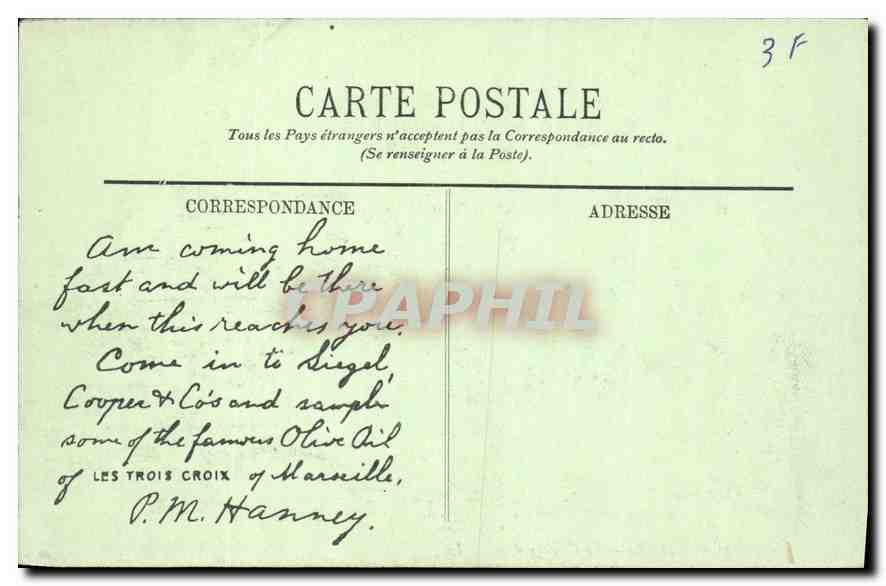 3 F
CARTE POSTALE
Tous les Pays étrangers n'acceptent pas la Correspondance au recto.
(Se renseigner à la Poste).
CORRESPONDANCE
ADRESSE
Am coming home
fast and will be there
when this reaches you.
Come in to Siegel,
Cooper & Co's and sample
some of the famous Olive Oil
of LES TROIS CROIX of Marseille.
P. M. Hanney.
CPAPHIL